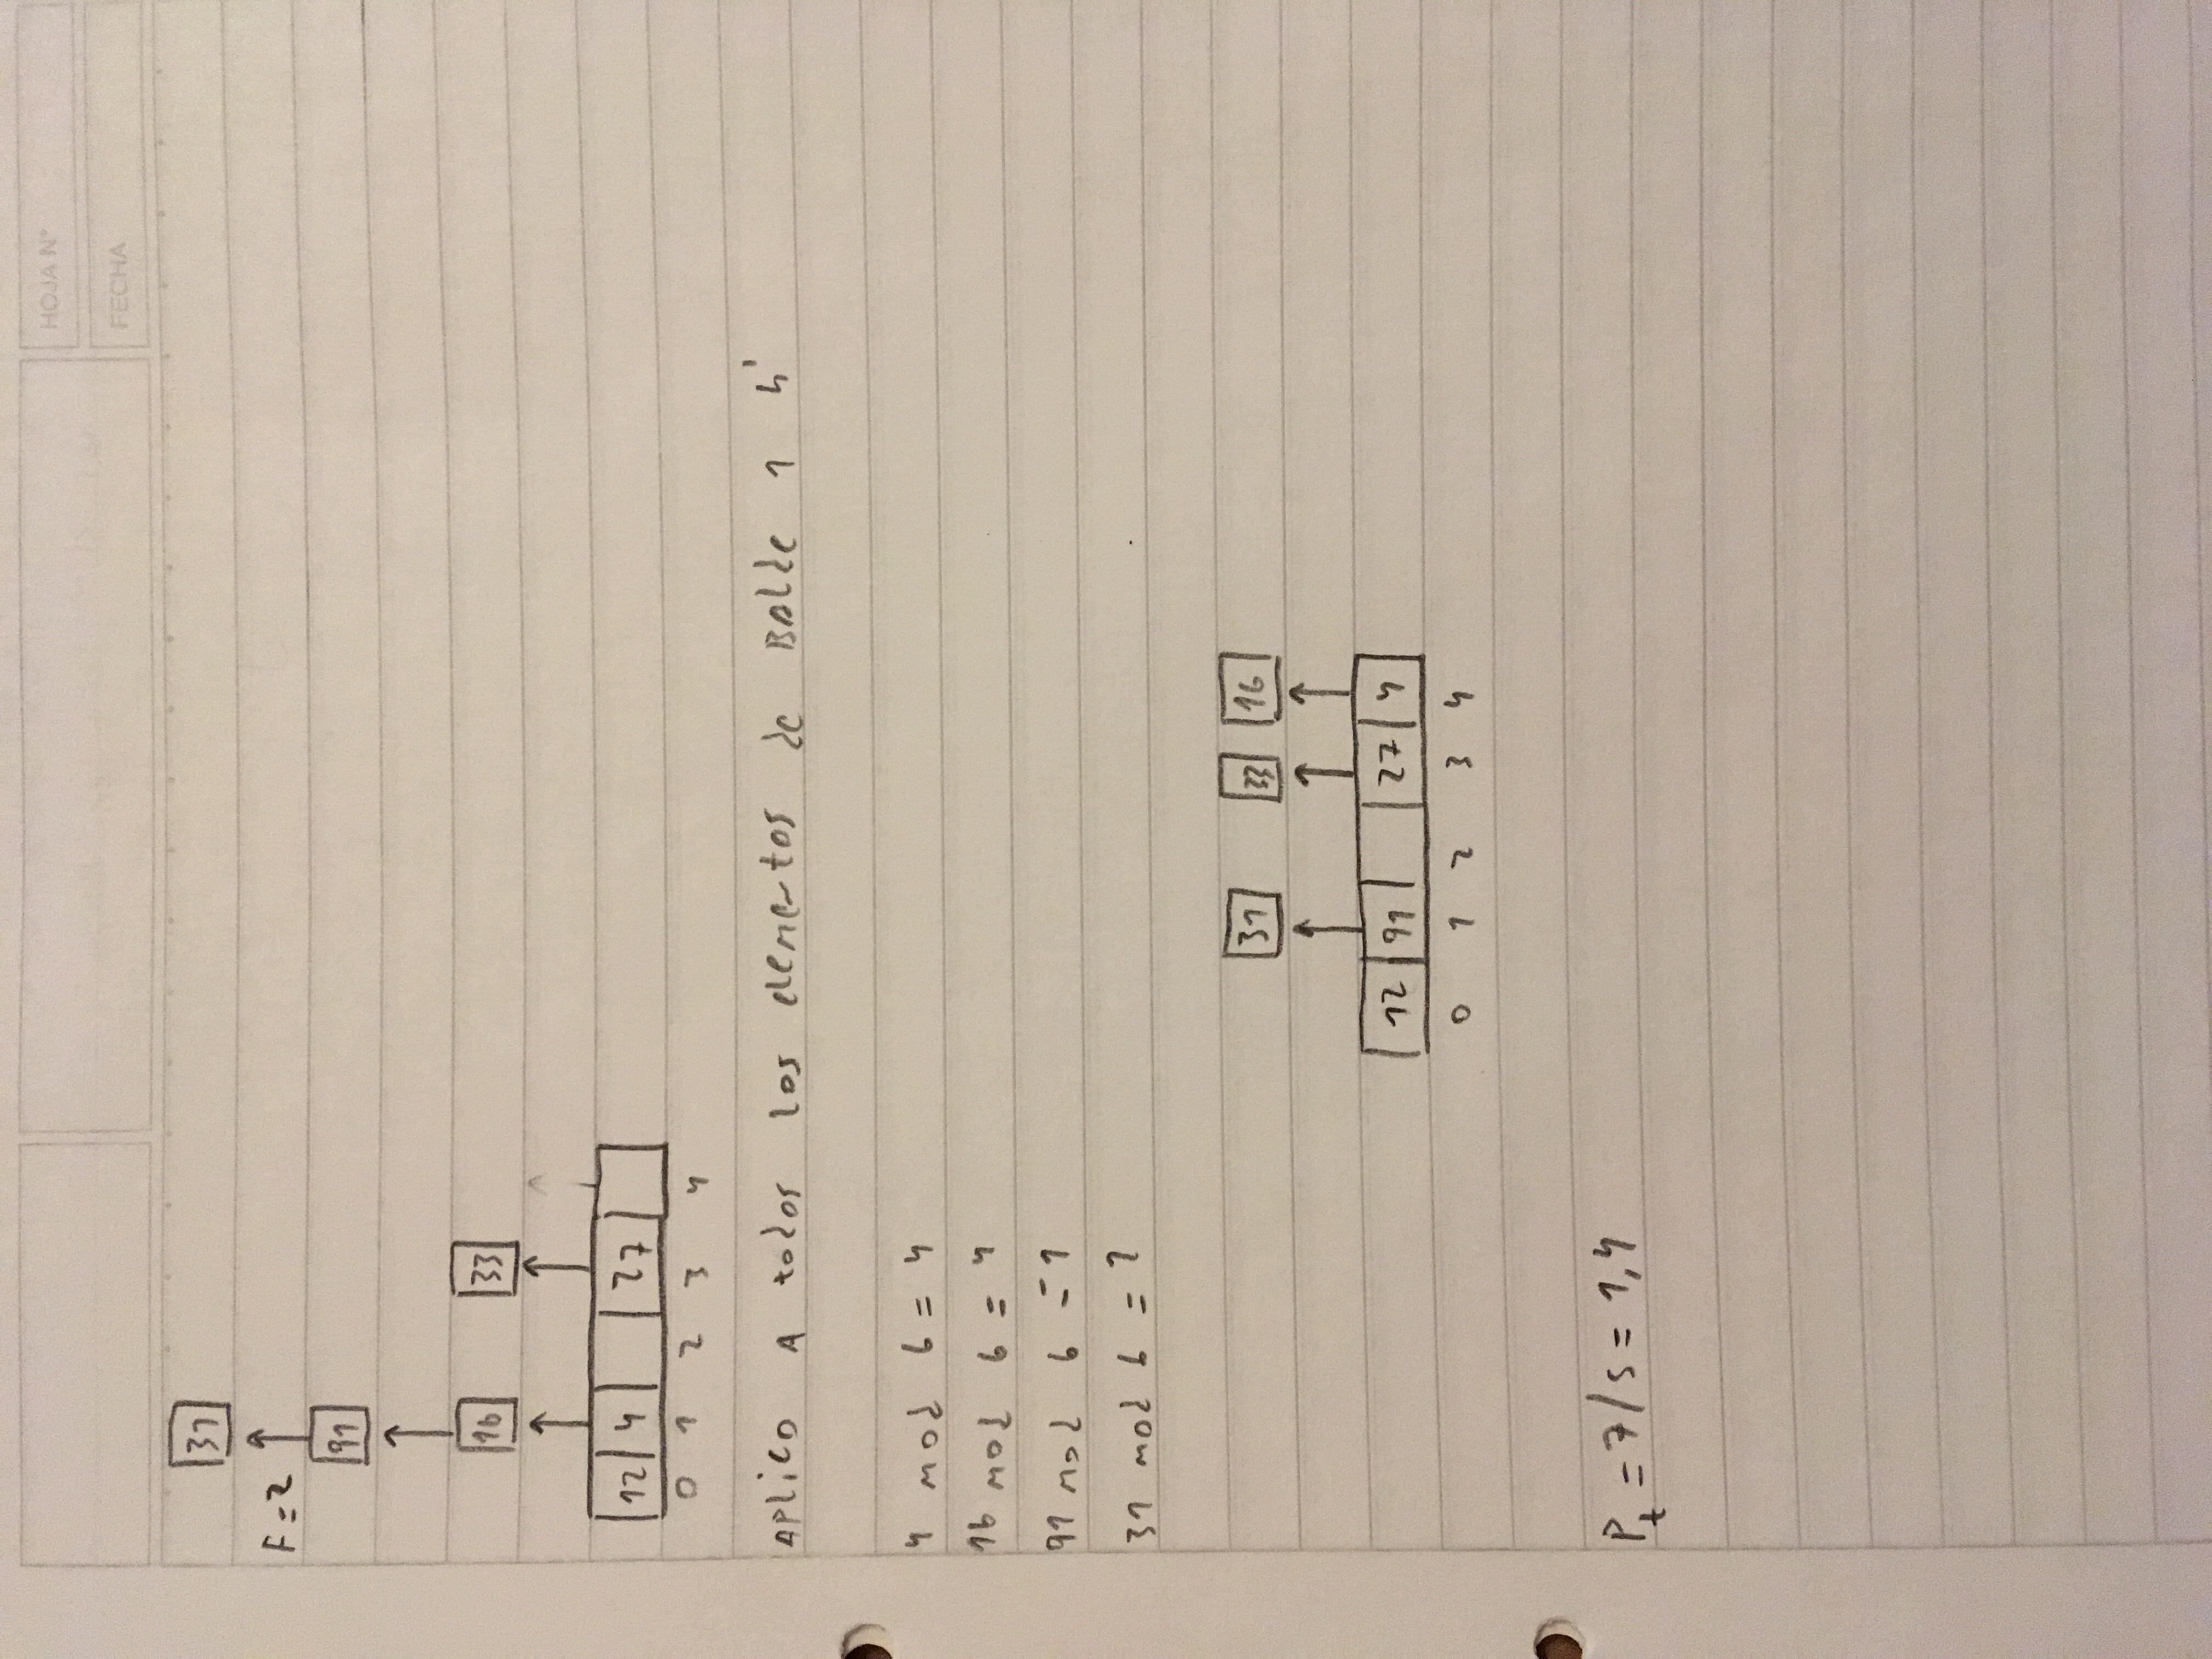 HOJA N°
FECHA
31
F=2
91
16 33
12 4 27
0 1 2 3 4
Aplico A todos los elementos de Balde 1 h'
4 mod 6 = 4
16 mod 6 = 4
91 mod 6 = 1
31 mod 6 = 1
31 33 16
12 91 27 4
0 1 2 3 4
Pt = 7/5 = 1,4